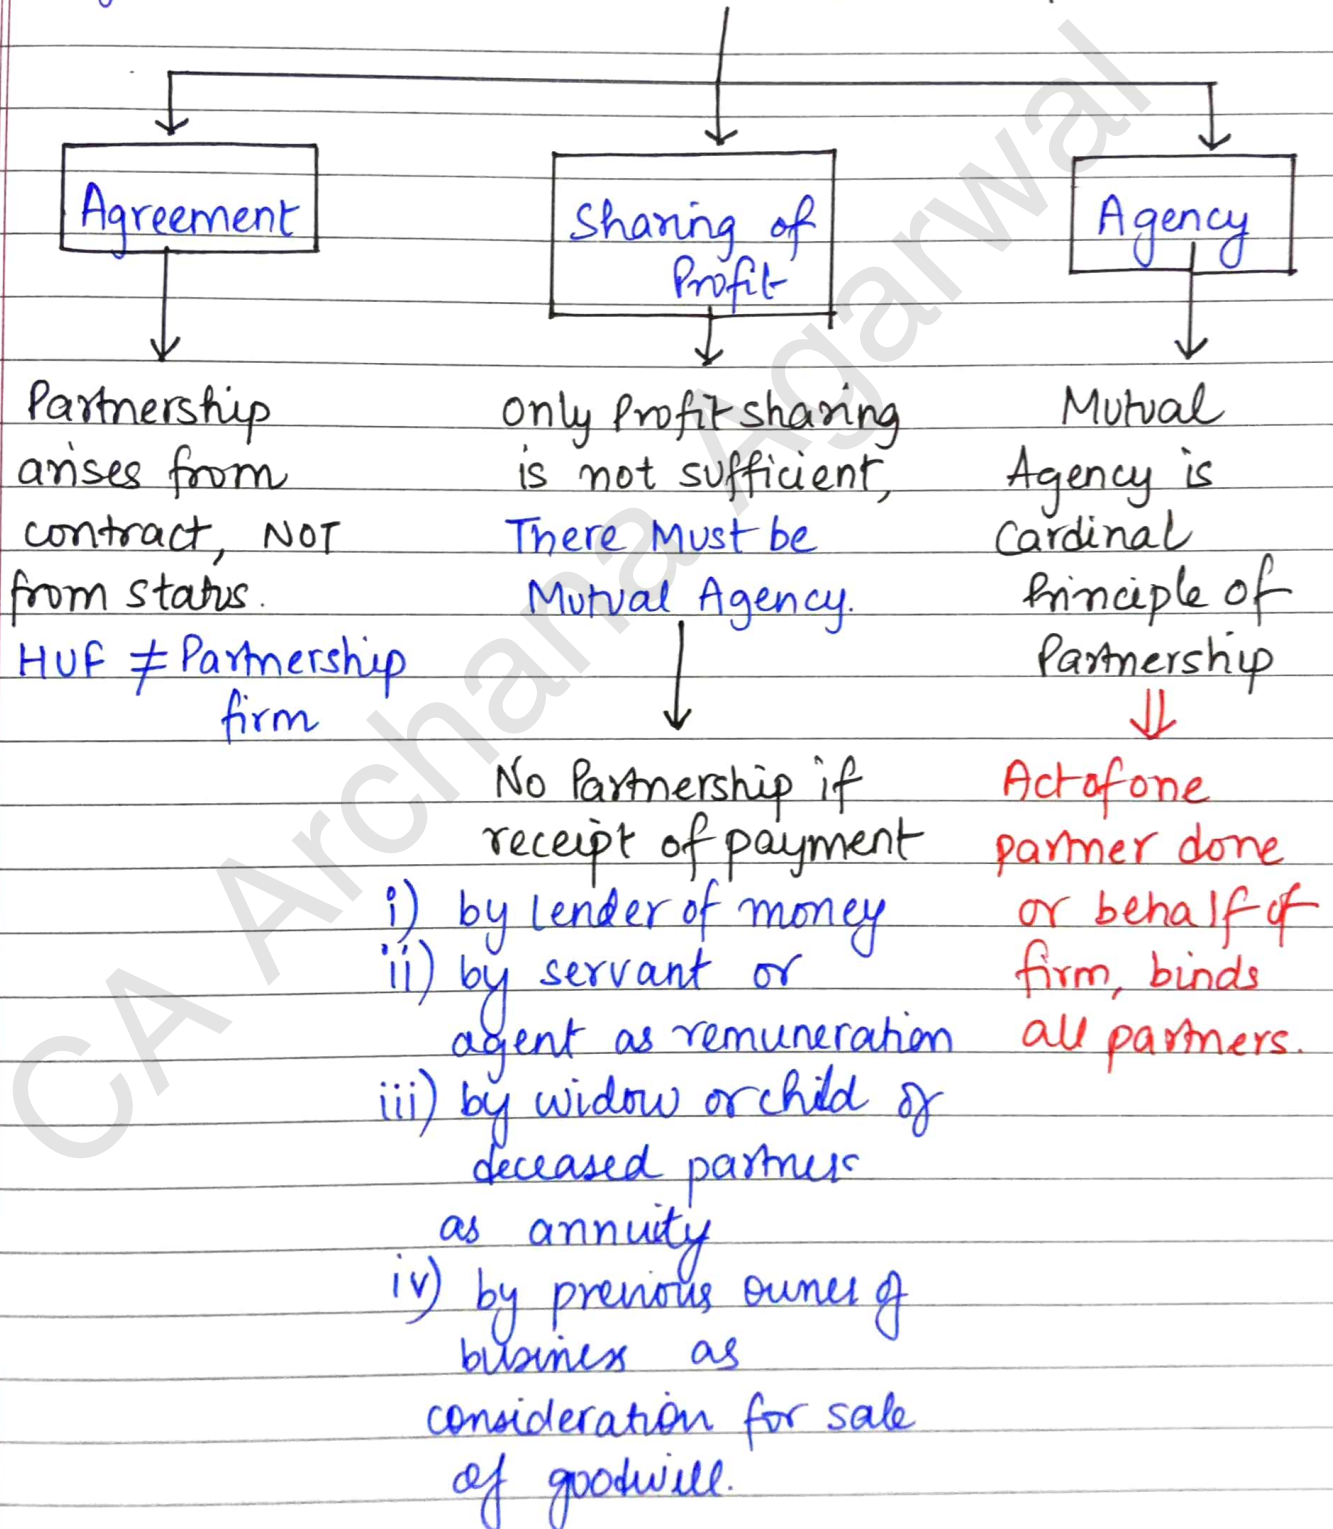 Agreement
Partnership
arises from
contract, NOT
from status.
HUF ≠ Partnership
firm
Sharing of
Profit
only Profit sharing
is not sufficient,
There Must be
Mutual Agency.
No Partnership if
receipt of payment
i) by lender of money
ii) by servant or
agent as remuneration
iii) by widow or child of
deceased partner
as annuity
iv) by previous owner of
business as
consideration for sale
of goodwill.
Agency
Mutual
Agency is
Cardinal
Principle of
Partnership
⇓
Act of one
partner done
or behalf of
firm, binds
all partners.
CA Archana Agarwal